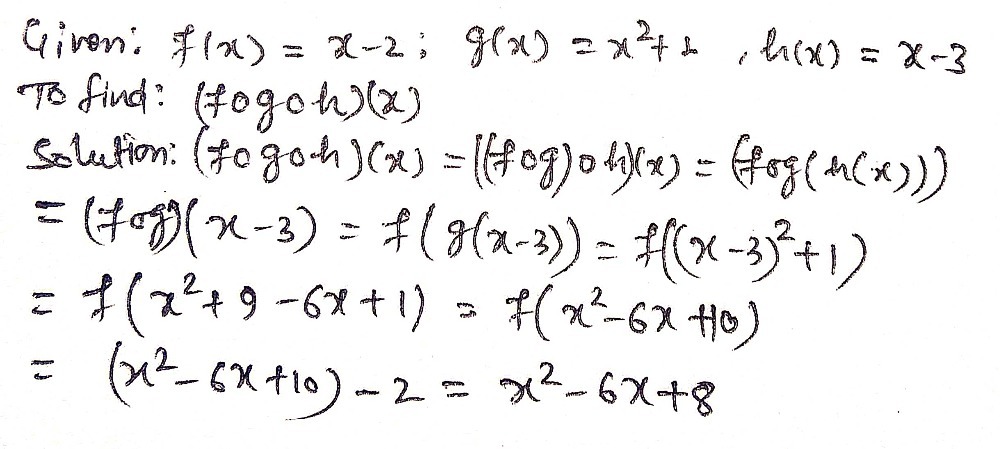 Given: f(x) = x-2; g(x) = x²+1, h(x) = x-3
To find: (fogoh)(x)
Solution: (fogoh)(x) = ((fog)oh)(x) = (fog(h(x)))
= (fog)(x-3) = f(g(x-3)) = f((x-3)²+1)
= f(x²+9-6x+1) = f(x²-6x+10)
= (x²-6x+10)-2 = x²-6x+8